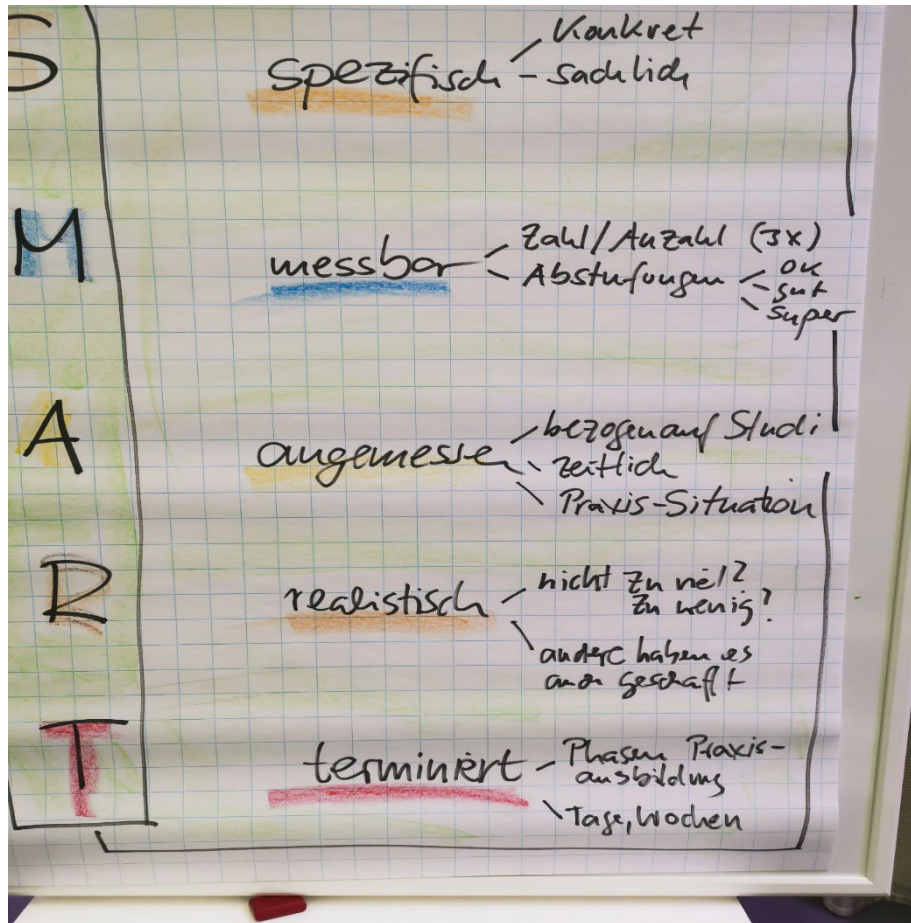 S spezifisch
Konkret
sachlich
M messbar
Zahl/Anzahl (3x)
Abstufungen
ok
gut
super
A angemessen
bezogen auf Studi
zeitlich
Praxis-Situation
R realistisch
nicht zu viel?
zu wenig?
andere haben es
auch geschafft
T terminiert
Phasen Praxis-
ausbildung
Tage, Wochen